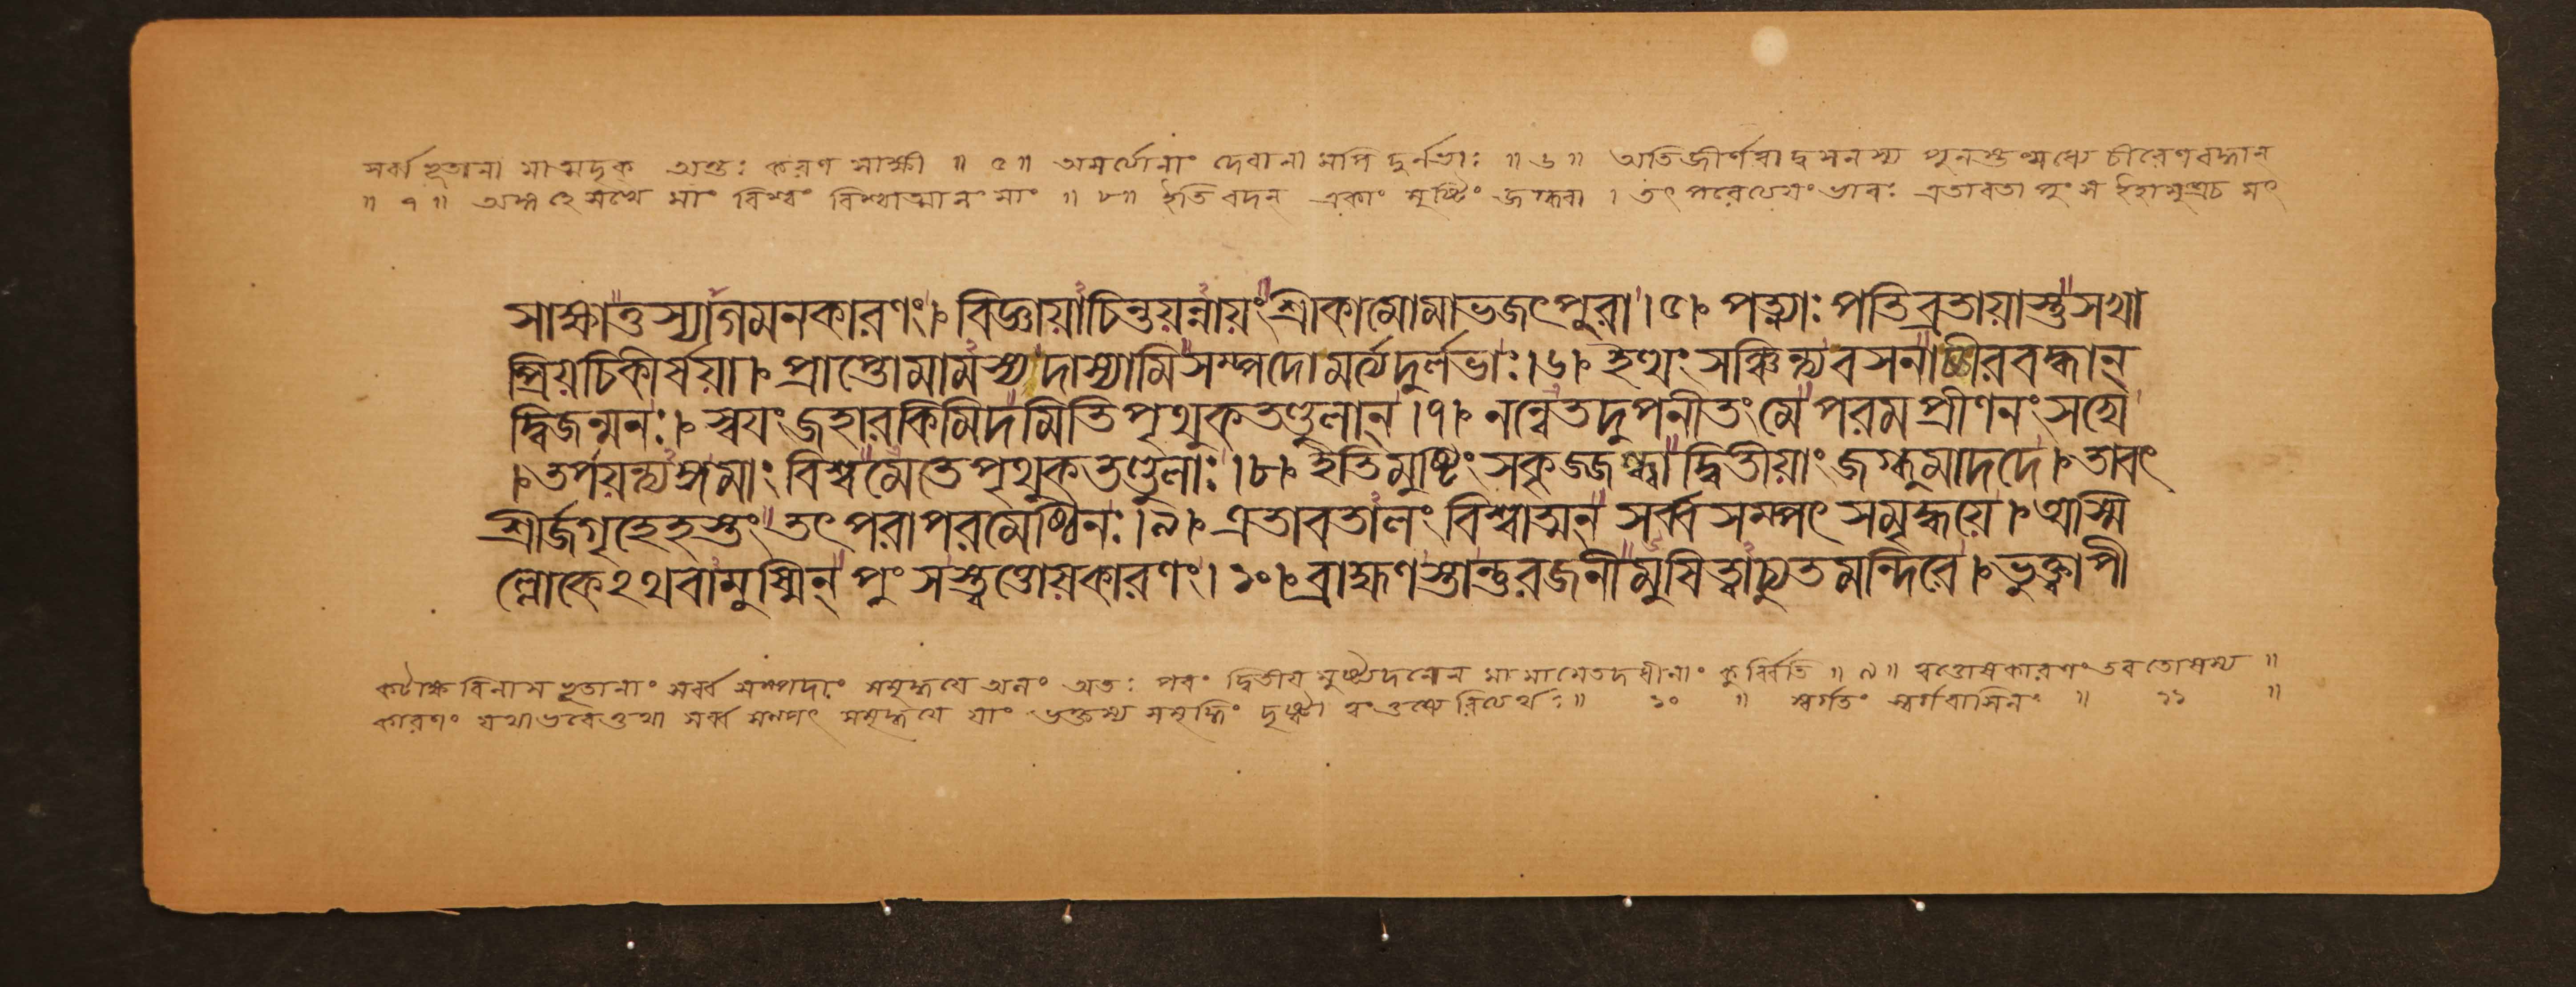 সর্ব্বভূতানা মাত্মদৃক অন্তঃ করণ সাক্ষী ॥ ৫ ॥ অমর্ত্যোনাং দেবানা মপি দুর্লভাঃ ॥ ৬ ॥ অতিজীর্ণত্বাদ্বসনস্য পুনস্তন্মধ্যে চীরেণবদ্ধান
॥ ৭ ॥ অঙ্গ হে সখে মাং বিশ্বং বিশ্বাত্মানং মাং ॥ ৮ ॥ ইতি বদন্ একাং মুষ্টিং জগ্ধ্বা । তৎ পরেত্যেয়ং ভাবঃ এতাবতা পুংস ইহামুত্রচ সৎ
সাক্ষাত্তস্যাগমনকারণং। বিজ্ঞায়াচিন্তয়ন্নায়ং শ্রীকামোমাভজৎপুরা।৫। পত্ন্যাঃ পতিব্রতায়াস্তু সখা
প্রিয়চিকীর্ষয়া। প্রাপ্তোমামস্য দাস্যামি সম্পদোমর্ত্যদুর্লভাঃ।৬। ইত্থং সঞ্চিন্ত্য বসনাচ্চীরবদ্ধান্
দ্বিজন্মনঃ। স্বয়ং জহার কিমিদমিতি পৃথুকতণ্ডুলান্।৭। নন্বেতদুপনীতং মে পরমপ্রীণনং সখে
। তর্পয়ন্ত্যঙ্গমাং বিশ্বমেতে পৃথুকতণ্ডুলাঃ।৮। ইতি মুষ্টিং সকৃজ্জগ্ধ্বা দ্বিতীয়াং জগ্ধুমাদদে। তাবৎ
শ্রীর্জগৃহেহস্তং তৎ পরা পরমেষ্ঠিনঃ।৯। এতাবতালং বিশ্বাত্মন্ সর্ব্বসম্পৎ সমৃদ্ধয়ে। অস্মি
ল্লোকেঽথবামুস্মিন্ পুংসস্ত্বত্তোষকারণং। ১০। ব্রাহ্মণস্তান্তুরজনীমুষিত্বাচ্যুতমন্দিরে। ভুক্ত্বাপী
কটাক্ষ বিলাস ভূতানাং সর্ব্ব সম্পদাং সমৃদ্ধয়ে অলং অতঃ পরং দ্বিতীয় মুষ্ট্যদনেন মা মামেতদধীনাং কুর্ব্বিতি ॥ ৯ ॥ ত্বত্তোষকারণং তব তোষস্য ॥
কারণং যথাভবেত্তথা সর্ব্ব সম্পৎ সমৃদ্ধয়ে যাং ভক্তস্য সমৃদ্ধিং দৃষ্ট্বা ত্বং তুষ্যেরিত্যর্থঃ ॥ ১০ ॥ স্বর্গতং স্বর্গবাসিনং ॥ ১১ ॥